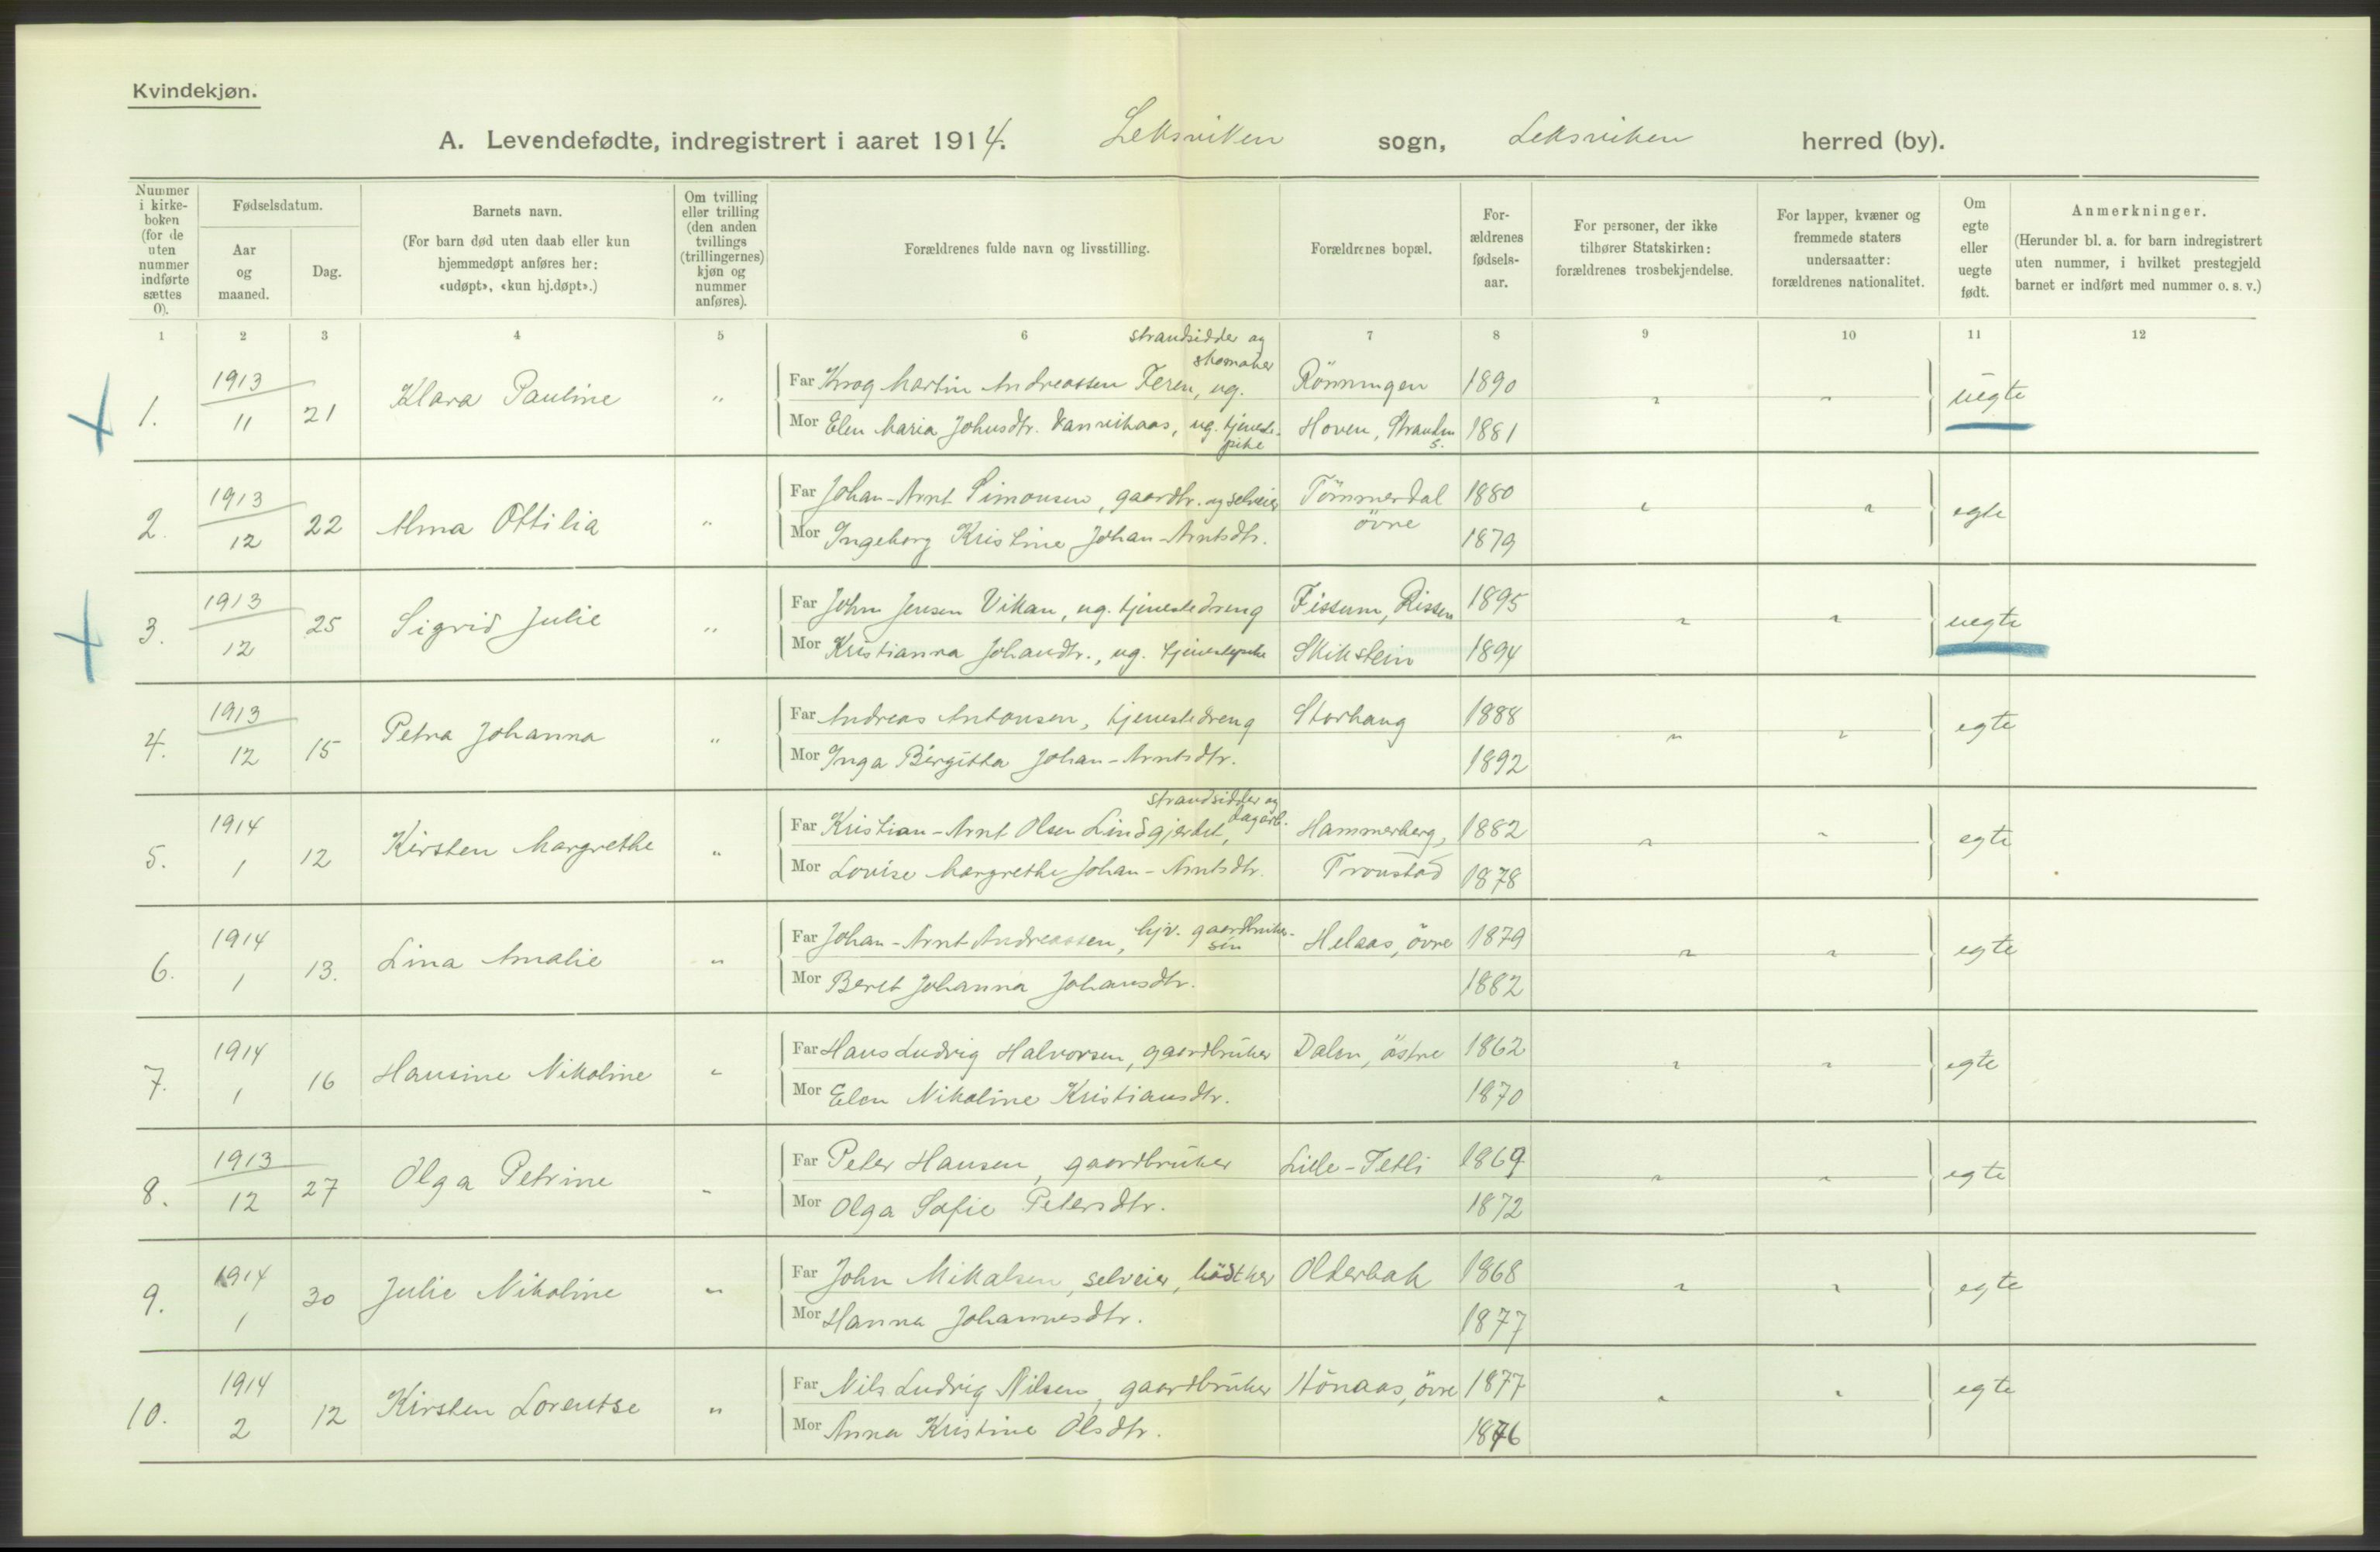 Kvindekjøn.
A. Levendefødte, indregistrert i aaret 1914. Leksviken sogn, Leksviken herred (by).
Nummer i kirke-boken (for de uten nummer indførte sættes 0).
Fødselsdatum.
Aar og maaned.
Dag.
Barnets navn.
(For barn død uten daab eller kun hjemmedøpt anføres her: «udøpt», «kun hj.døpt».)
Om tvilling eller trilling (den anden tvillings (trillingernes) kjøn og nummer anføres).
Forældrenes fulde navn og livsstilling.
Forældrenes bopæl.
For-ældrenes fødsels-aar.
For personer, der ikke tilhører Statskirken: forældrenes trosbekjendelse.
For lapper, kvæner og fremmede staters undersaatter: forældrenes nationalitet.
Om egte eller uegte født.
Anmerkninger.
(Herunder bl. a. for barn indregistrert uten nummer, i hvilket prestegjeld barnet er indført med nummer o. s. v.)
1 2 3 4 5 6 7 8 9 10 11 12
strandsidder og skomaker
1. 1913 11 21 Klara Pauline " Far Krog Martin Andreassen Feren, ug. Rönningen 1890 " " uegte
Mor Elen Maria Johnsdtr. Vanvikaas, ug. tjeneste-pike Hoven, Stranden s. 1881
2. 1913 12 22 Alma Ottilia " Far Johan-Arnt Simonsen, gaardbr. og selveier Tömmerdal övre 1880 " " egte
Mor Ingeborg Kristine Johan-Arntsdtr. 1879
3. 1913 12 25 Sigrid Julie " Far John Jensen Vikan, ug. tjenestedreng Fissum, Rissen 1895 " " uegte
Mor Kristianna Johandtr., ug. tjenestepike Skikstein 1894
4. 1913 12 15 Petra Johanna " Far Andreas Antonsen, tjenestedreng Storhaug 1888 " " egte
Mor Inga Bergitta Johan-Arntsdtr. 1892
strandsidder og dagarb.
5. 1914 1 12 Kirsten Margrethe " Far Kristian-Arnt Olsen Lindgjerdet, Hammerberg, 1882 " " egte
Mor Lovise Margrethe Johan-Arntsdtr. Tronstad 1878
6. 1914 1 13. Lina Amalie " Far Johan-Arnt Andreassen, hjv. gaardbruker-sön Helaas, övre 1879 " " egte
Mor Beret Johanna Johansdtr. 1882
7. 1914 1 16 Hansine Nikoline " Far Hans Ludvig Halvorsen, gaardbruker Dalen, östre 1862 " " egte
Mor Elen Nikoline Kristiansdtr. 1870
8. 1913 12 27 Olga Petrine " Far Peter Hansen, gaardbruker Lille-Tetli 1869 " " egte
Mor Olga Sofie Petersdtr. 1872
9. 1914 1 30 Julie Nikoline " Far John Mikalsen, selveier, bödtker Olderbak 1868 " " egte
Mor Hanna Johannesdtr. 1877
10. 1914 2 12 Kirsten Lorentse " Far Nils Ludvig Nilsen, gaardbruker Hönaas, övre 1877 " " egte
Mor Anna Kristine Olsdtr. 1876